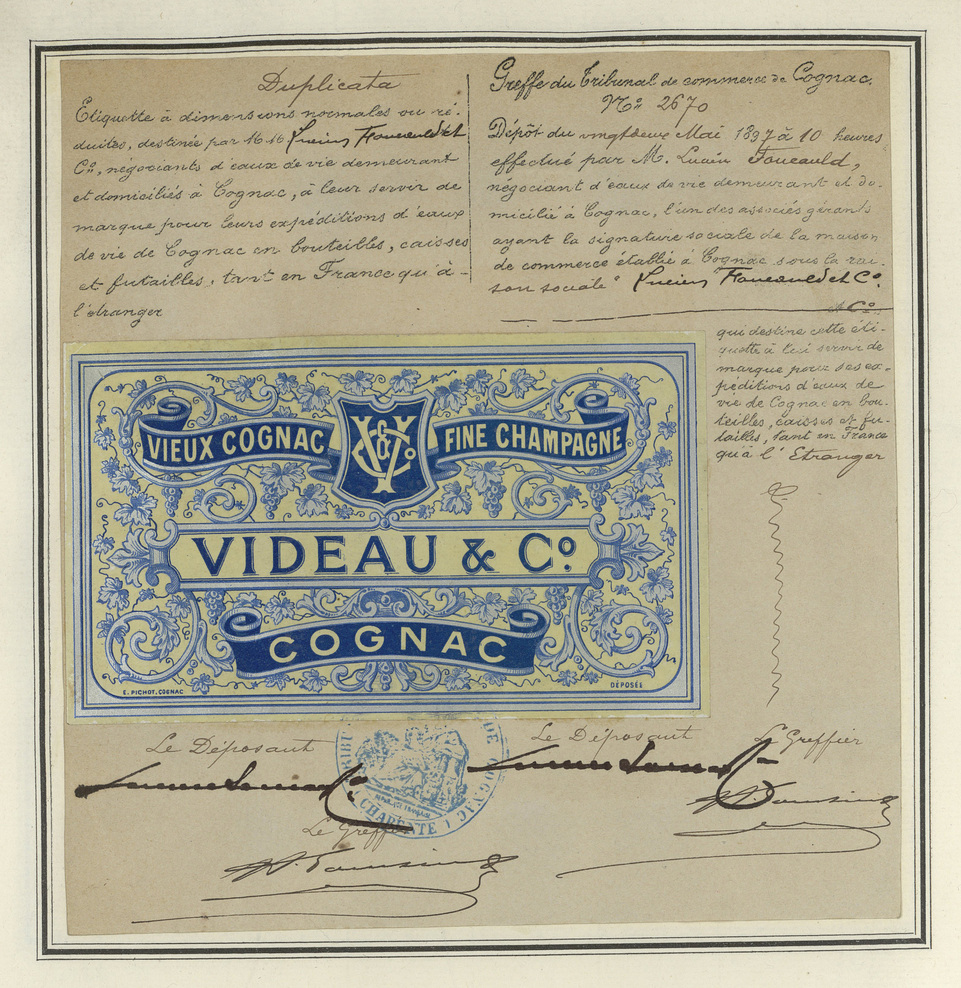 Duplicata
Etiquette à dimensions normales ou ré-
duites, destinée par M.M Lucien Foucauld et
Cº, négociants d'eaux de vie demeurant
et domiciliés à Cognac, à leur servir de
marque pour leurs expéditions d'eaux
de vie de Cognac en bouteilles, caisses
et futailles, tant en France qu'à -
l'étranger
Greffe du Tribunal de commerce de Cognac.
Nº 2670
Dépôt du vingt deux Mai 1897 à 10 heures
effectué par M. Lucien Foucauld,
négociant d'eaux de vie demeurant et do-
micilié à Cognac, l'un des associés gérants
ayant la signature sociale de la maison
de commerce établie à Cognac sous la rai-
son sociale " Lucien Foucauld et Cº.
et Cº.
qui destine cette éti-
quette à lui servir de
marque pour ses ex-
péditions d'eaux de
vie de Cognac en bou-
teilles, caisses et fu-
tailles, tant en France
qu'à l'Etranger
VIEUX COGNAC
V & Cº
FINE CHAMPAGNE
VIDEAU & Cº.
COGNAC
E. PICHOT, COGNAC
DÉPOSÉE
Le Déposant
Le Déposant
Le Greffier
DE COGNAC
RÉPUBLIQUE FRANÇAISE
CHARENTE
Le Greffier